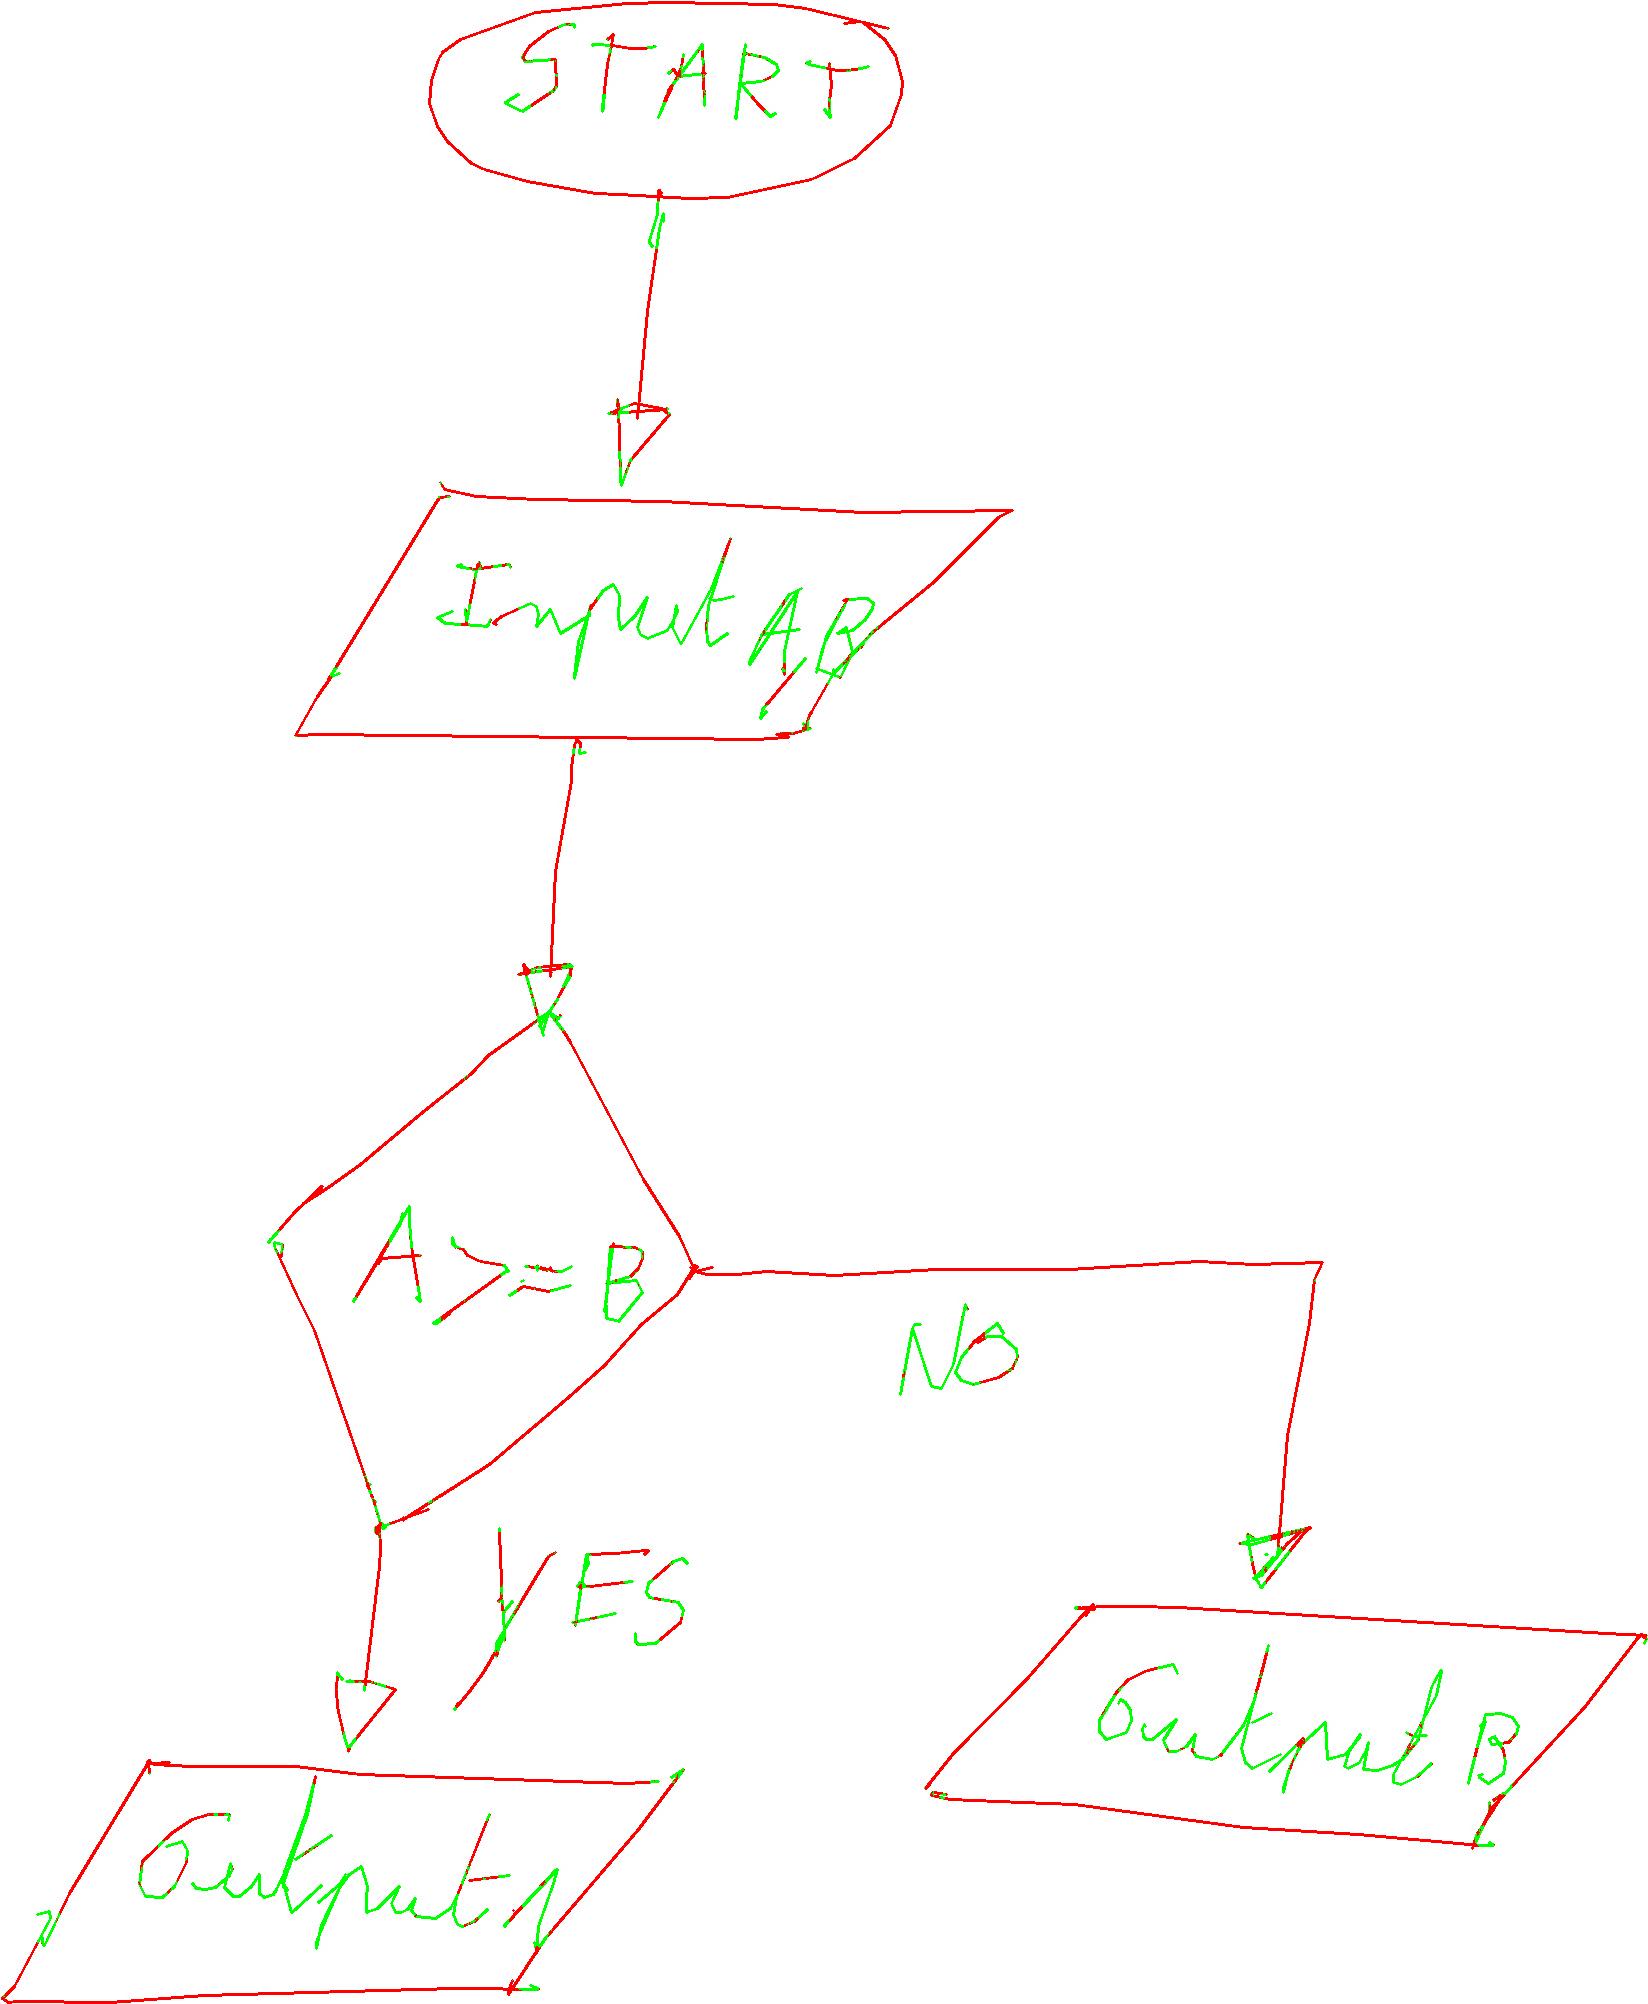 START
Input A,B
A>=B
NO
YES
Output B
Output